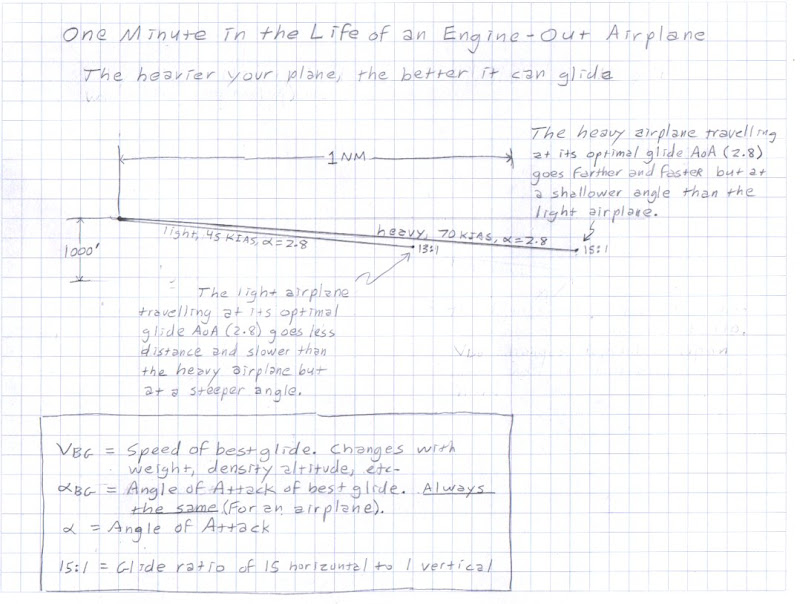 One Minute in the Life of an Engine-Out Airplane
The heavier your plane, the better it can glide
The heavy airplane travelling
at its optimal glide AoA (2.8)
goes farther and faster but at
a shallower angle than the
light airplane.
1 NM
light, 45 KIAS, α=2.8
heavy, 70 KIAS, α=2.8
13:1
15:1
1000'
The light airplane
travelling at its optimal
glide AoA (2.8) goes less
distance and slower than
the heavy airplane but
at a steeper angle.
VBG = Speed of best glide. Changes with
weight, density altitude, etc-
αBG = Angle of Attack of best glide. Always
the same (For an airplane).
α = Angle of Attack
15:1 = Glide ratio of 15 horizontal to 1 vertical